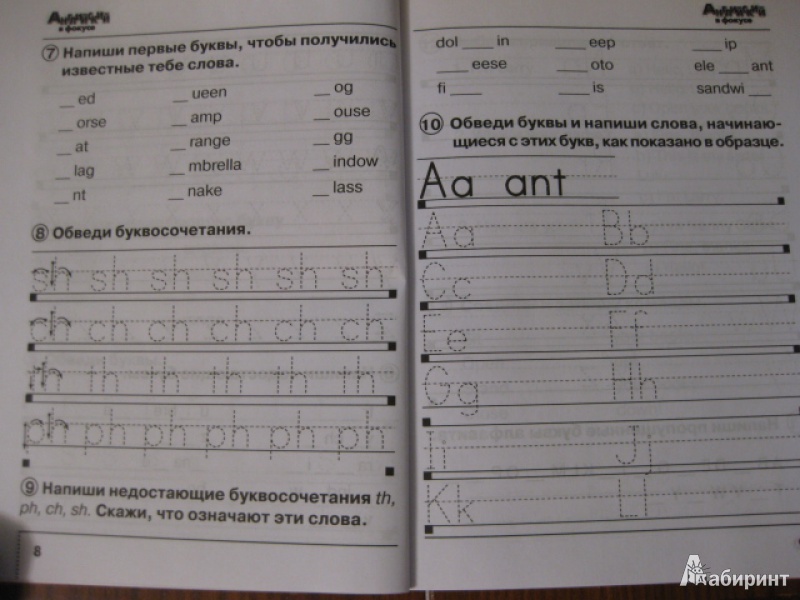 Английский
в фокусе
7 Напиши первые буквы, чтобы получились
известные тебе слова.
__ ed __ ueen __ og
__ orse __ amp __ ouse
__ at __ range __ gg
__ lag __ mbrella __ indow
__ nt __ nake __ lass
8 Обведи буквосочетания.
sh sh sh sh sh sh
ch ch ch ch ch ch
th th th th th th
ph ph ph ph ph ph
9 Напиши недостающие буквосочетания th,
ph, ch, sh. Скажи, что означают эти слова.
8
Английский
в фокусе
dol ___ in ___ eep ___ ip
___ eese ___ oto ele ___ ant
fi ___ ___ is sandwi ___
10 Обведи буквы и напиши слова, начинаю-
щиеся с этих букв, как показано в образце.
Aa ant
Aa Bb
Cc Dd
Ee Ff
Gg Hh
Ii Jj
Kk Ll
Лабиринт